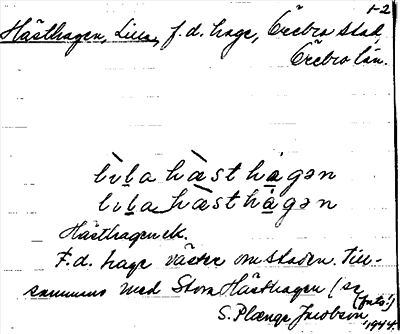 1-2
Hästhagen, Lilla, f.d. hage, Örebro stad
Örebro län.
lìla hæ̀st hàgən
lìla hæ̀st hàgən
Hästhagen
F.d. hage väster om staden. Till-
sammans med Stora Hästhagen (se
S. Plænge Jacobson
1944.